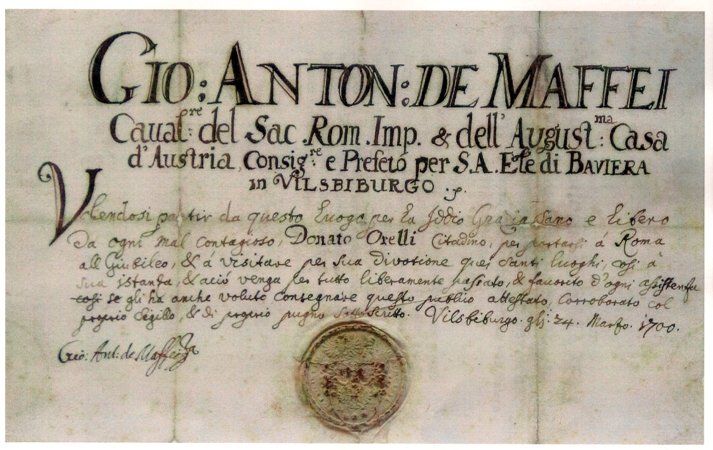 GIO: ANTON: DE MAFFEI
Caual:re del Sac. Rom. Imp. & dell'August:ma Casa
d'Austria, Consig:re e Prefeto per S.A. Ele di BAVIERA
in VILSBIBURGO .p.
Volendosi partir da questo Luogo, per la Iddio Grazia Sano e libero
da ogni mal contagioso, Donato Orelli Citadino, per portarsi á Roma
all Giubileo, & á visitare per sua divotione quei Santi luoghi, cosi á
sua istanza, & ació venga per tutto liberamente passato, & favorito d'ogni assistenza
cosi se gli ha anche voluto consegnare questo publico attestato, corroborato col
proprio Sigillo, & di proprio pugno Sottoscritto. Vilsbiburgo. gli: 24. Marzo. 1700.
Gio: Ant: de Maffei